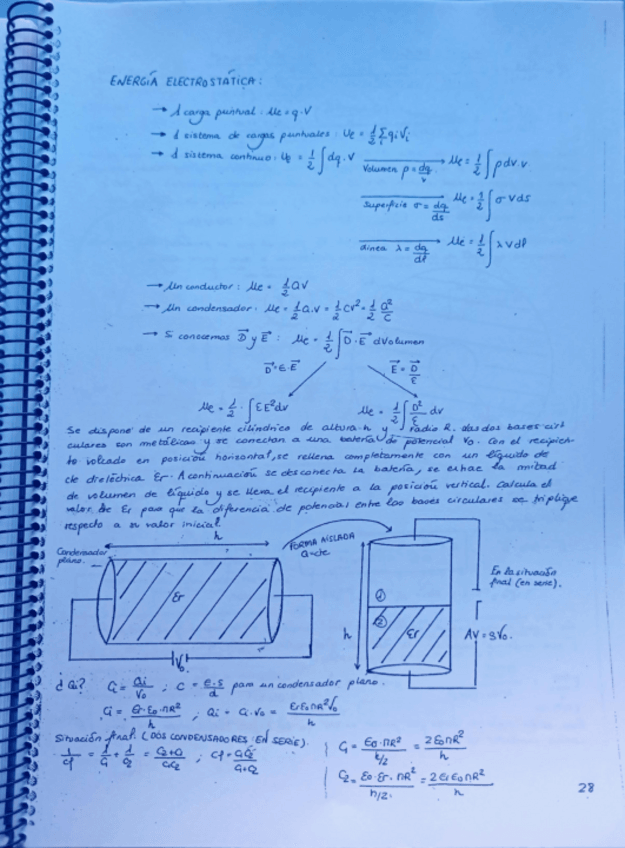 ENERGÍA ELECTROSTÁTICA:
→ 1 carga puntual: Ue = q·V
→ 1 sistema de cargas puntuales: Ue = 1/2 Σ qi Vi
→ 1 sistema continuo: Ue = 1/2 ∫ dq·V → Volumen ρ = dq/v → Ue = 1/2 ∫ ρ dv·v
Superficie σ = dq/ds → Ue = 1/2 ∫ σ V ds
Línea λ = dq/dl → Ue = 1/2 ∫ λ V dl
→ Un conductor: Ue = 1/2 QV
→ Un condensador: Ue = 1/2 Q·V = 1/2 CV² = 1/2 Q²/C
→ S conocemos D⃗ y E⃗ : Ue = 1/2 ∫ D⃗·E⃗ dVolumen
D⃗ = ε·E⃗ E⃗ = D⃗/ε
Ue = 1/2 · ∫ εE² dv Ue = 1/2 ∫ D²/ε dv
Se dispone de un recipiente cilíndrico de altura h y radio R. Las dos bases cir
culares son metálicas y se conectan a una batería de potencial V₀. Con el recipien
te volcado en posición horizontal, se rellena completamente con un líquido de
cte dieléctrica Er. A continuación se desconecta la batería, se extrae la mitad
de volumen de líquido y se lleva el recipiente a la posición vertical. Calcula el
valor de Er para que la diferencia de potencial entre las bases circulares se triplique
respecto a su valor inicial.
h
Condensador
plano.
FORMA AISLADA
Q = cte
Er
V₀
①
②
Er
h
En la situación
final (en serie).
ΔV = 3V₀.
¿Qi? Ci = Qi/V₀ ; C = ε·s/d para un condensador plano.
Ci = Er·E₀·πR²/h ; Qi = Ci·V₀ = ErE₀πR²V₀/h
Situación final. (DOS CONDENSADORES EN SERIE).
1/Cf = 1/C₁ + 1/C₂ = C₂+C₁/C₁C₂ ; Cf = C₁C₂/C₁+C₂
C₁ = E₀·πR²/h/2 = 2E₀πR²/h
C₂ = E₀·Er·πR²/h/2 = 2ErE₀πR²/h
28